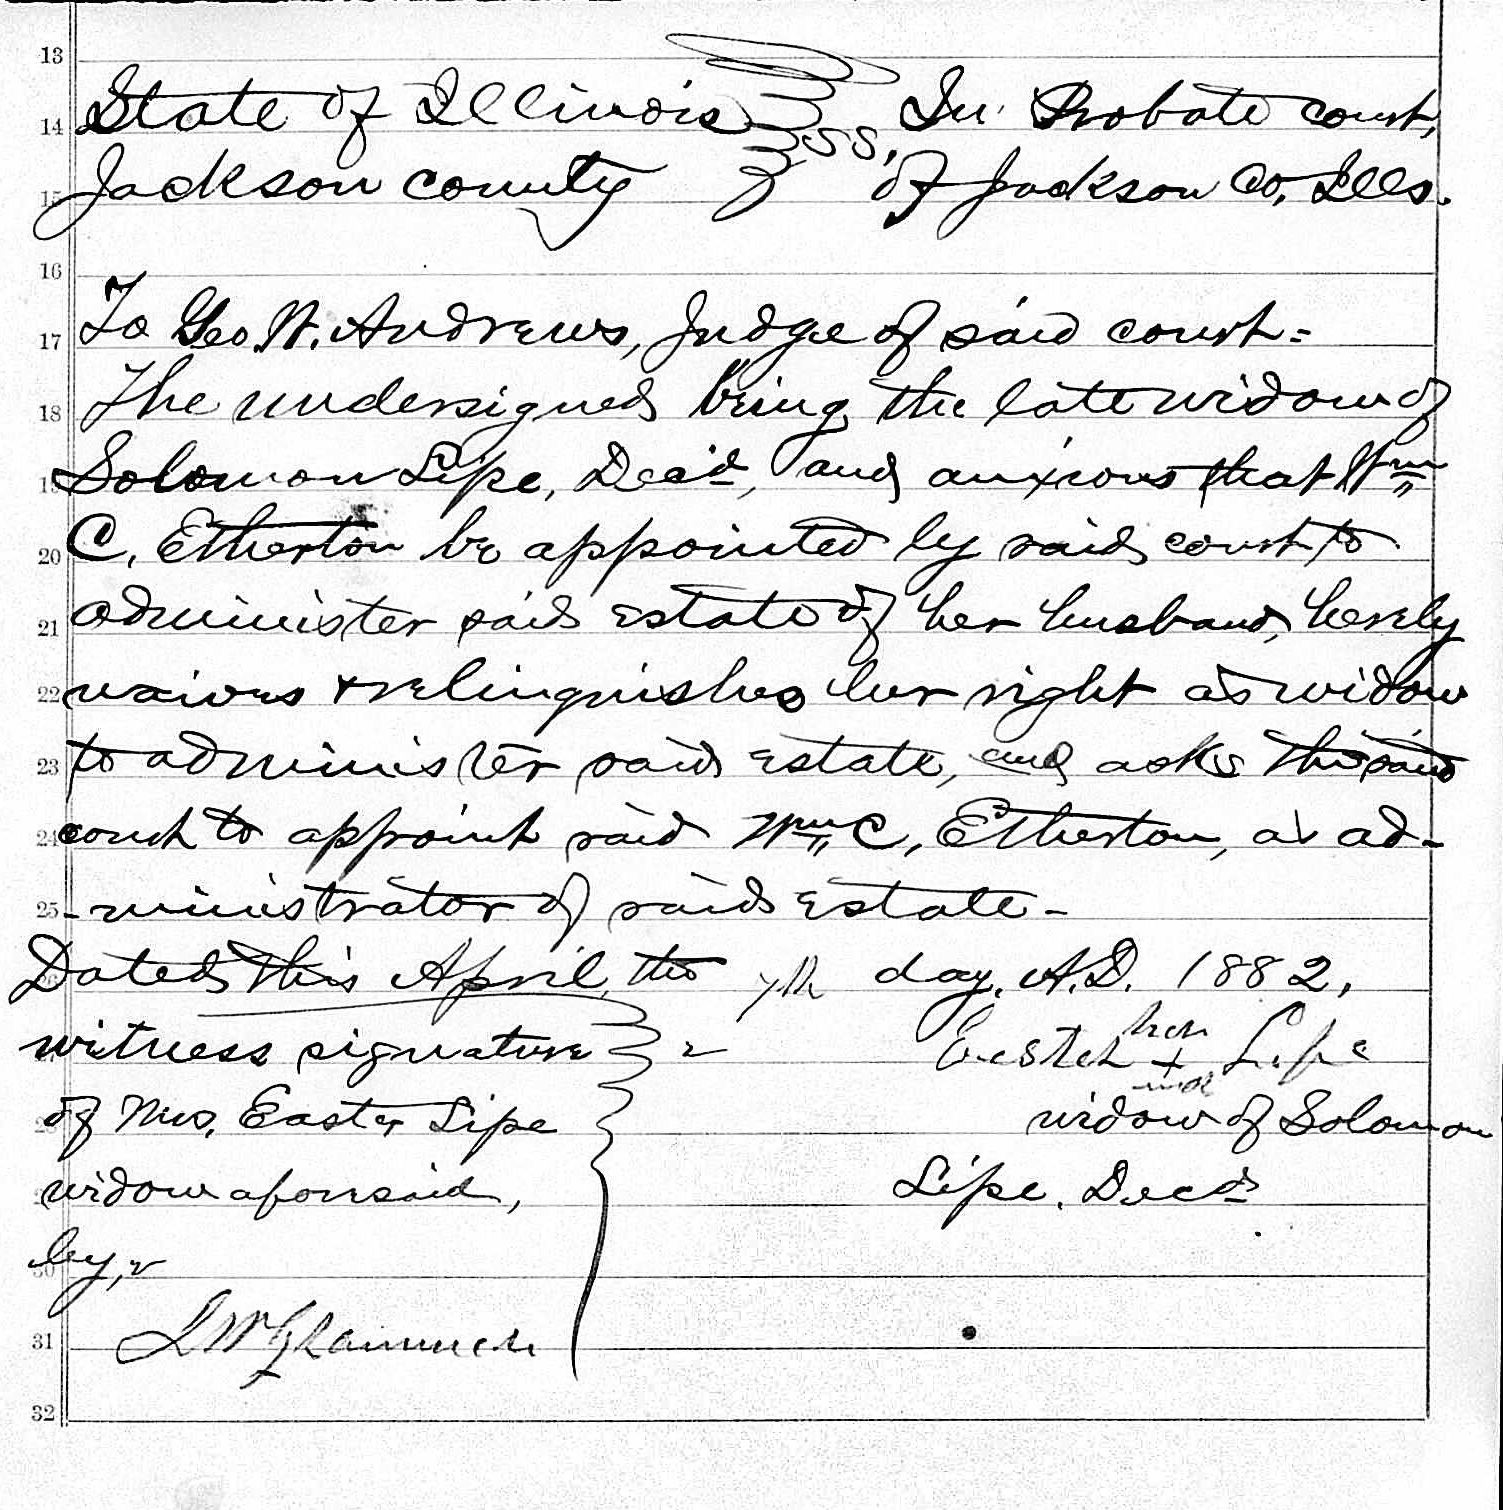 13
State of Illinois } SS. In Probate court,
14
Jackson county } of Jackson Co, Ills.
15
16
To Geo. W. Andrews, Judge of said court =
17
The undersigned being the late widow of
18
Solomon Lipe, Dec'd, and anxious that Wm
19
C, Etherton be appointed by said court to
20
administer said estate of her husband, hereby
21
waives + relinquishes her right as widow
22
to administer said estate, and asks the said
23
court to appoint said Wm C, Etherton, as ad-
24
-ministrator of said estate -
25
Dated this April, the 7th day, A.D. 1882,
witness signature Eester her + Lipe
mark
of Mrs, Easter Lipe widow of Solomon
widow aforesaid, Lipe, Decd
by,
30
31
32